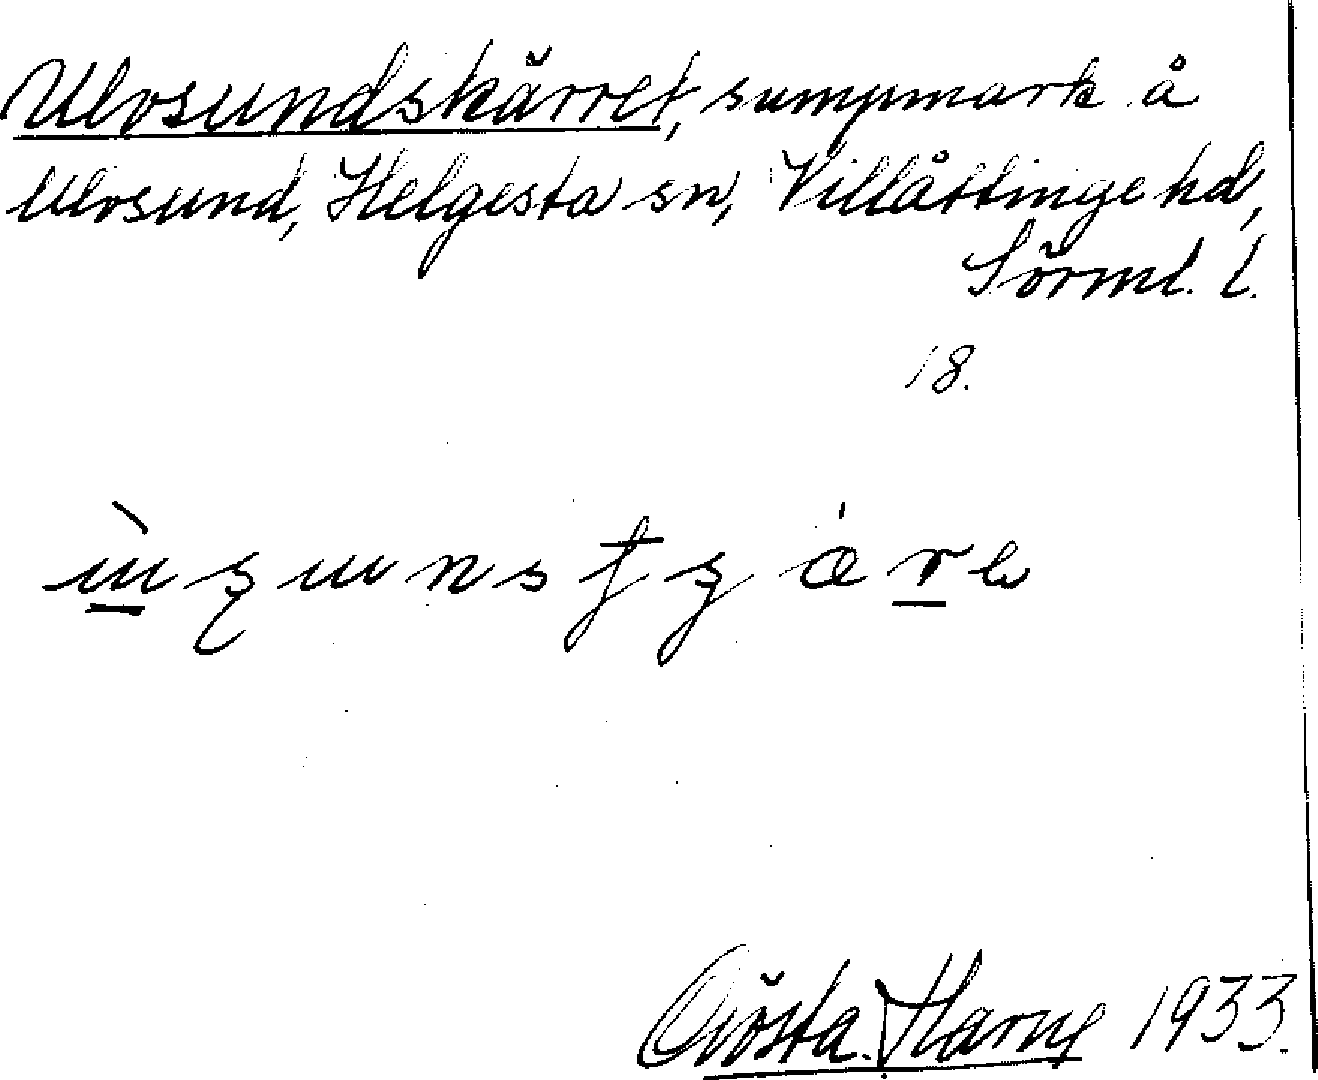 Ulvsundskärret, sumpmark å
Ulvsund, Helgesta sn, Villåttinge hd,
Sörml. l.
18.
Gösta Harng 1933.